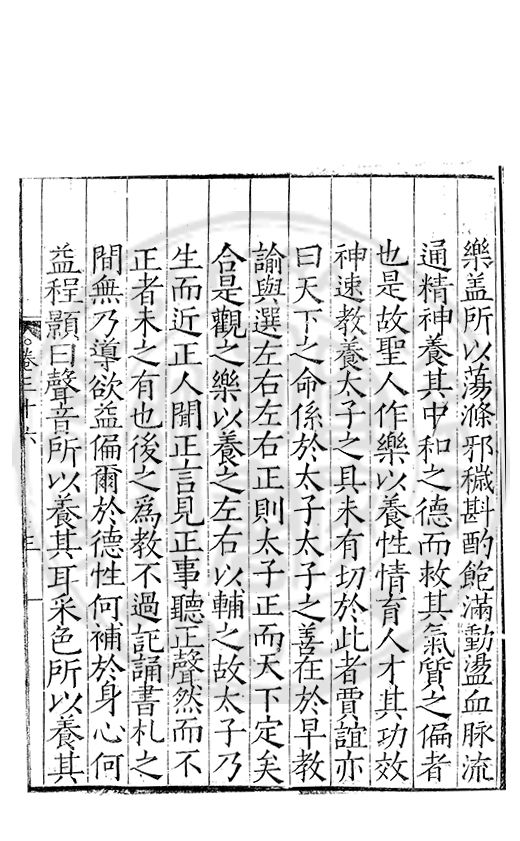 樂盖所以蕩滌邪穢斟酌飽滿動盪血脉流
通精神養其中和之德而救其氣質之偏者
也是故聖人作樂以養性情育人才其功效
神速教養太子之具未有切於此者賈誼亦
曰天下之命係於太子太子之善在於早教
諭與選左右左右正則太子正而天下定矣
合是觀之樂以養之左右以輔之故太子乃
生而近正人聞正言見正事聽正聲然而不
正者未之有也後之爲教不過記誦書札之
間無乃導欲益偏爾於德性何補於身心何
益程顥曰聲音所以養其耳采色所以養其
卷三十六
三